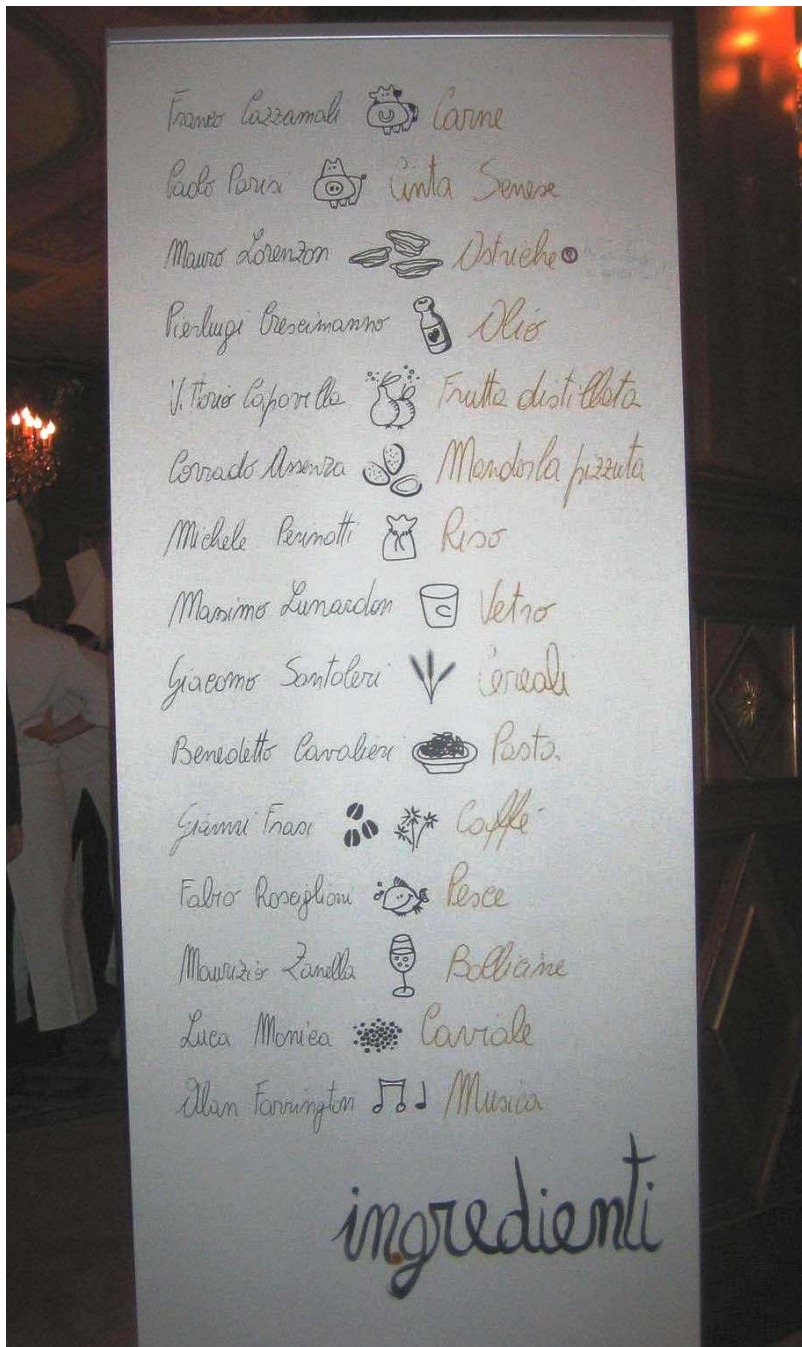 Franco Cazzamali Carne
Paolo Parisi Cinta Senese
Mauro Lorenzon Ostriche
Pierluigi Crescimanno Olio
Vittorio Capovilla Frutta distillata
Corrado Assenza Mandorla pizzuta
Michele Perinotti Riso
Massimo Lunardon Vetro
Giacomo Santoleri Cereali
Benedetto Cavalieri Pasta
Gianni Frasi Caffè
Fabio Rosciglioni Pesce
Maurizio Zanella Bollicine
Luca Monica Caviale
Alan Farrington Musica
ingredienti